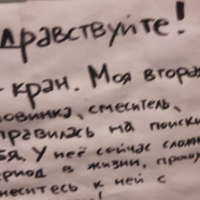 здравствуйте!
- кран. Моя вторая
ловинка, смеситель,
правилась на поиски
бя. У неё сейчас слож
ериод в жизни, прошу
неситесь к ней с